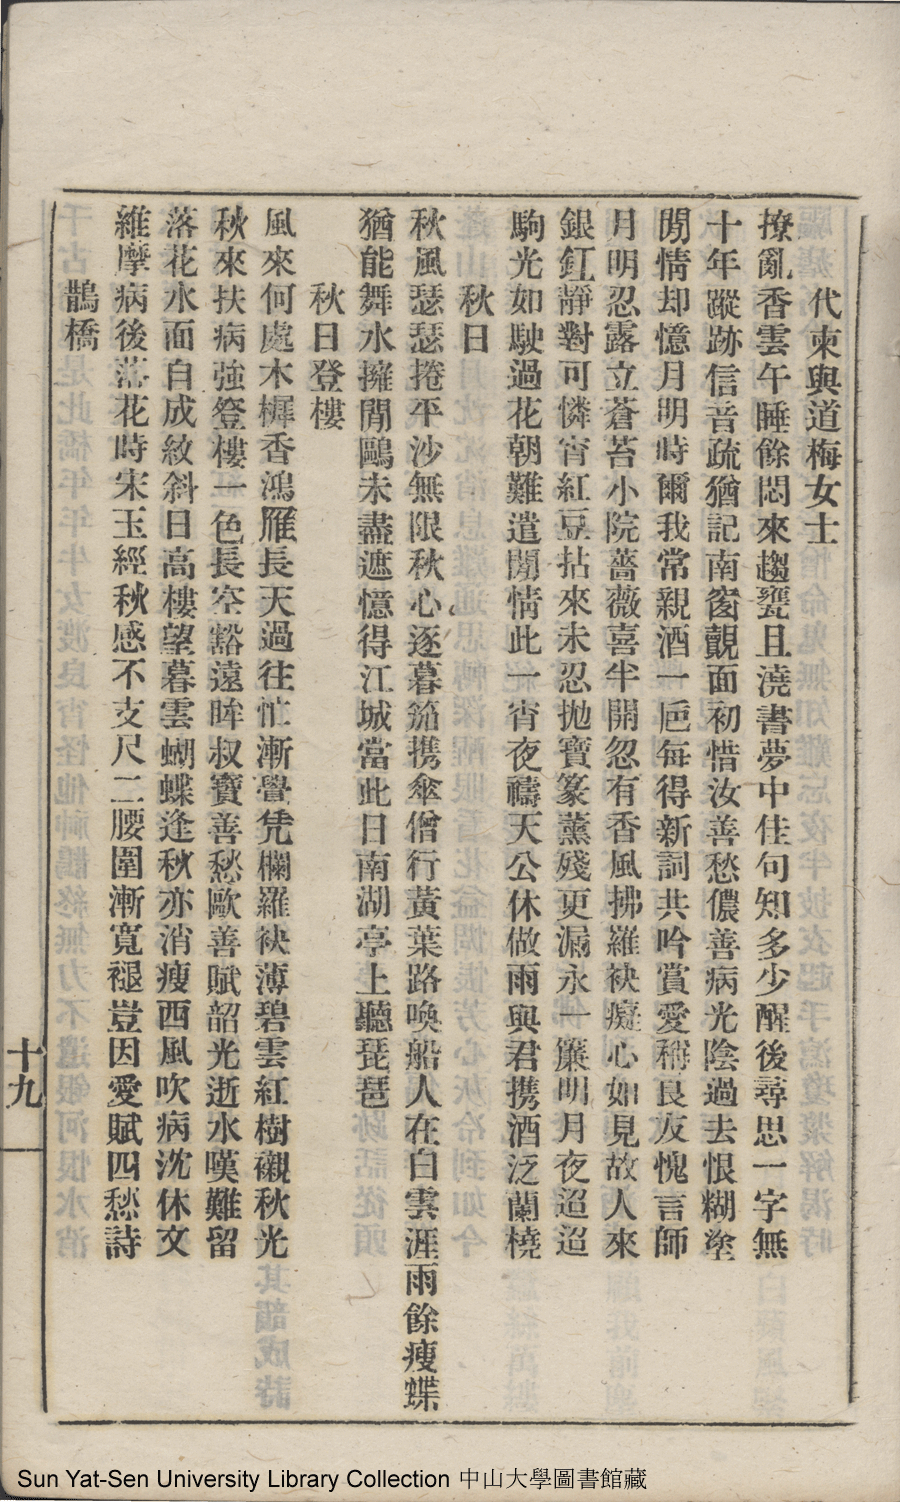 代柬與道梅女士
撩亂香雲午睡餘悶來趨甕且澆書夢中佳句知多少醒後尋思一字無
十年蹤跡信音疏猶記南窗覿面初惜汝善愁儂善病光陰過去恨糊塗
閒情却憶月明時爾我常親酒一巵每得新詞共吟賞愛稱良友愧言師
月明忍露立蒼苔小院薔薇喜半開忽有香風拂羅袂癡心如見故人來
銀釭靜對可憐宵紅豆拈來未忍拋寶篆薰殘更漏永一簾明月夜迢迢
駒光如駛過花朝難遣閒情此一宵夜禱天公休做雨與君携酒泛蘭橈
秋日
秋風瑟瑟捲平沙無限秋心逐暮笳携傘僧行黃葉路喚船人在白雲涯雨餘瘦蝶
猶能舞水擁閒鷗未盡遮憶得江城當此日南湖亭上聽琵琶
秋日登樓
風來何處木樨香鴻雁長天過往忙漸覺凭欄羅袂薄碧雲紅樹襯秋光
秋來扶病強登樓一色長空豁遠眸叔寶善愁歐善賦韶光逝水嘆難留
落花水面自成紋斜日高樓望暮雲蝴蝶逢秋亦消瘦西風吹病沈休文
維摩病後落花時宋玉經秋感不支尺二腰圍漸寬褪豈因愛賦四愁詩
鵲橋
十九
Sun Yat-Sen University Library Collection 中山大學圖書館藏